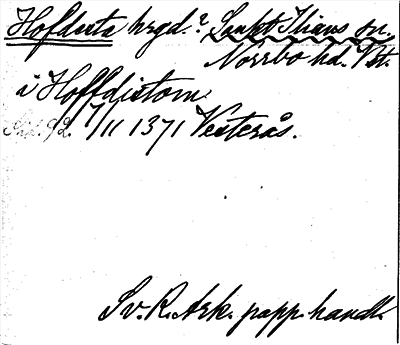 Hofdesta hrgd.? Sankt Ilians sn.
Norrbo hd. Vst.
i Hoffdistom
92. 7/11 1371 Vesterås.
Sv. R. Ark. papp. handl.